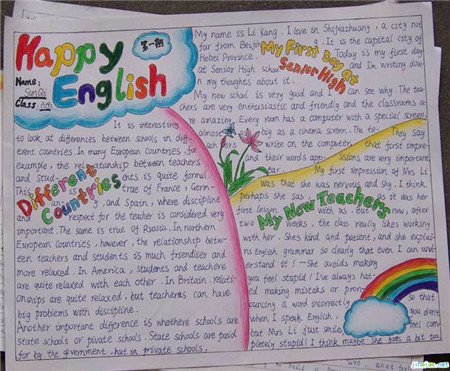 Happy
English
第一期
Name:
Class:
My name is Li Kang. I live on Shijiazhuang, a city not
far from Beijing. It is the capital city of
Hebei Province. Today is my first day
at Senior High school and I'm writing down
my thoughts about it.
My First Day at
Senior High
My new school is very good and I can see why. The tea-
chers are very enthusiastic and friendly and the classrooms a-
re amazing. Every room has a computer with a special screen,
almost as big as a cinema screen. The te-
achers write on the computer,
and their words app-
They say
that first impre-
ssions are very important
My first impression of Mrs Li
was that she was nervous and shy. I think
perhaps she was, as it was her
first lesson with us. But now, after
two weeks, the class really likes working
with her. She's kind and patient, and she explai-
ns English grammar so clearly that even I can und-
erstand it! —She avoids making
you feel stupid! I've always hat-
ed making mistaks or pron-
ouncing a word incorrectly
when I speak English,
but Mrs Li just smile
so that
you don't
feel com-
pletely stupid! I think maybe she goes a bit too
My New Teachers
It is interesting
to look at differences between schools in diff-
erent countries. In many European countries, for
example, the relationship between teachers
and stud- ents is quite formal.
This is true of France, Germ-
any, and Spain, where discipline
and respect for the teacher is considered very
important. The same is true of Russia. In northern
European countries, however, the relationship betw-
een teachers and students is much friendlier and
more relaxed. In America, students and teachers
are quite relaxed with each other. In Britain, relati-
onships are quite relaxed, but teacherns can have
big problems with discipline.
Another important difference is whethere schools are
state schools or private schools. State schools are paid
for by the government, but in private schools,
Different
Countries